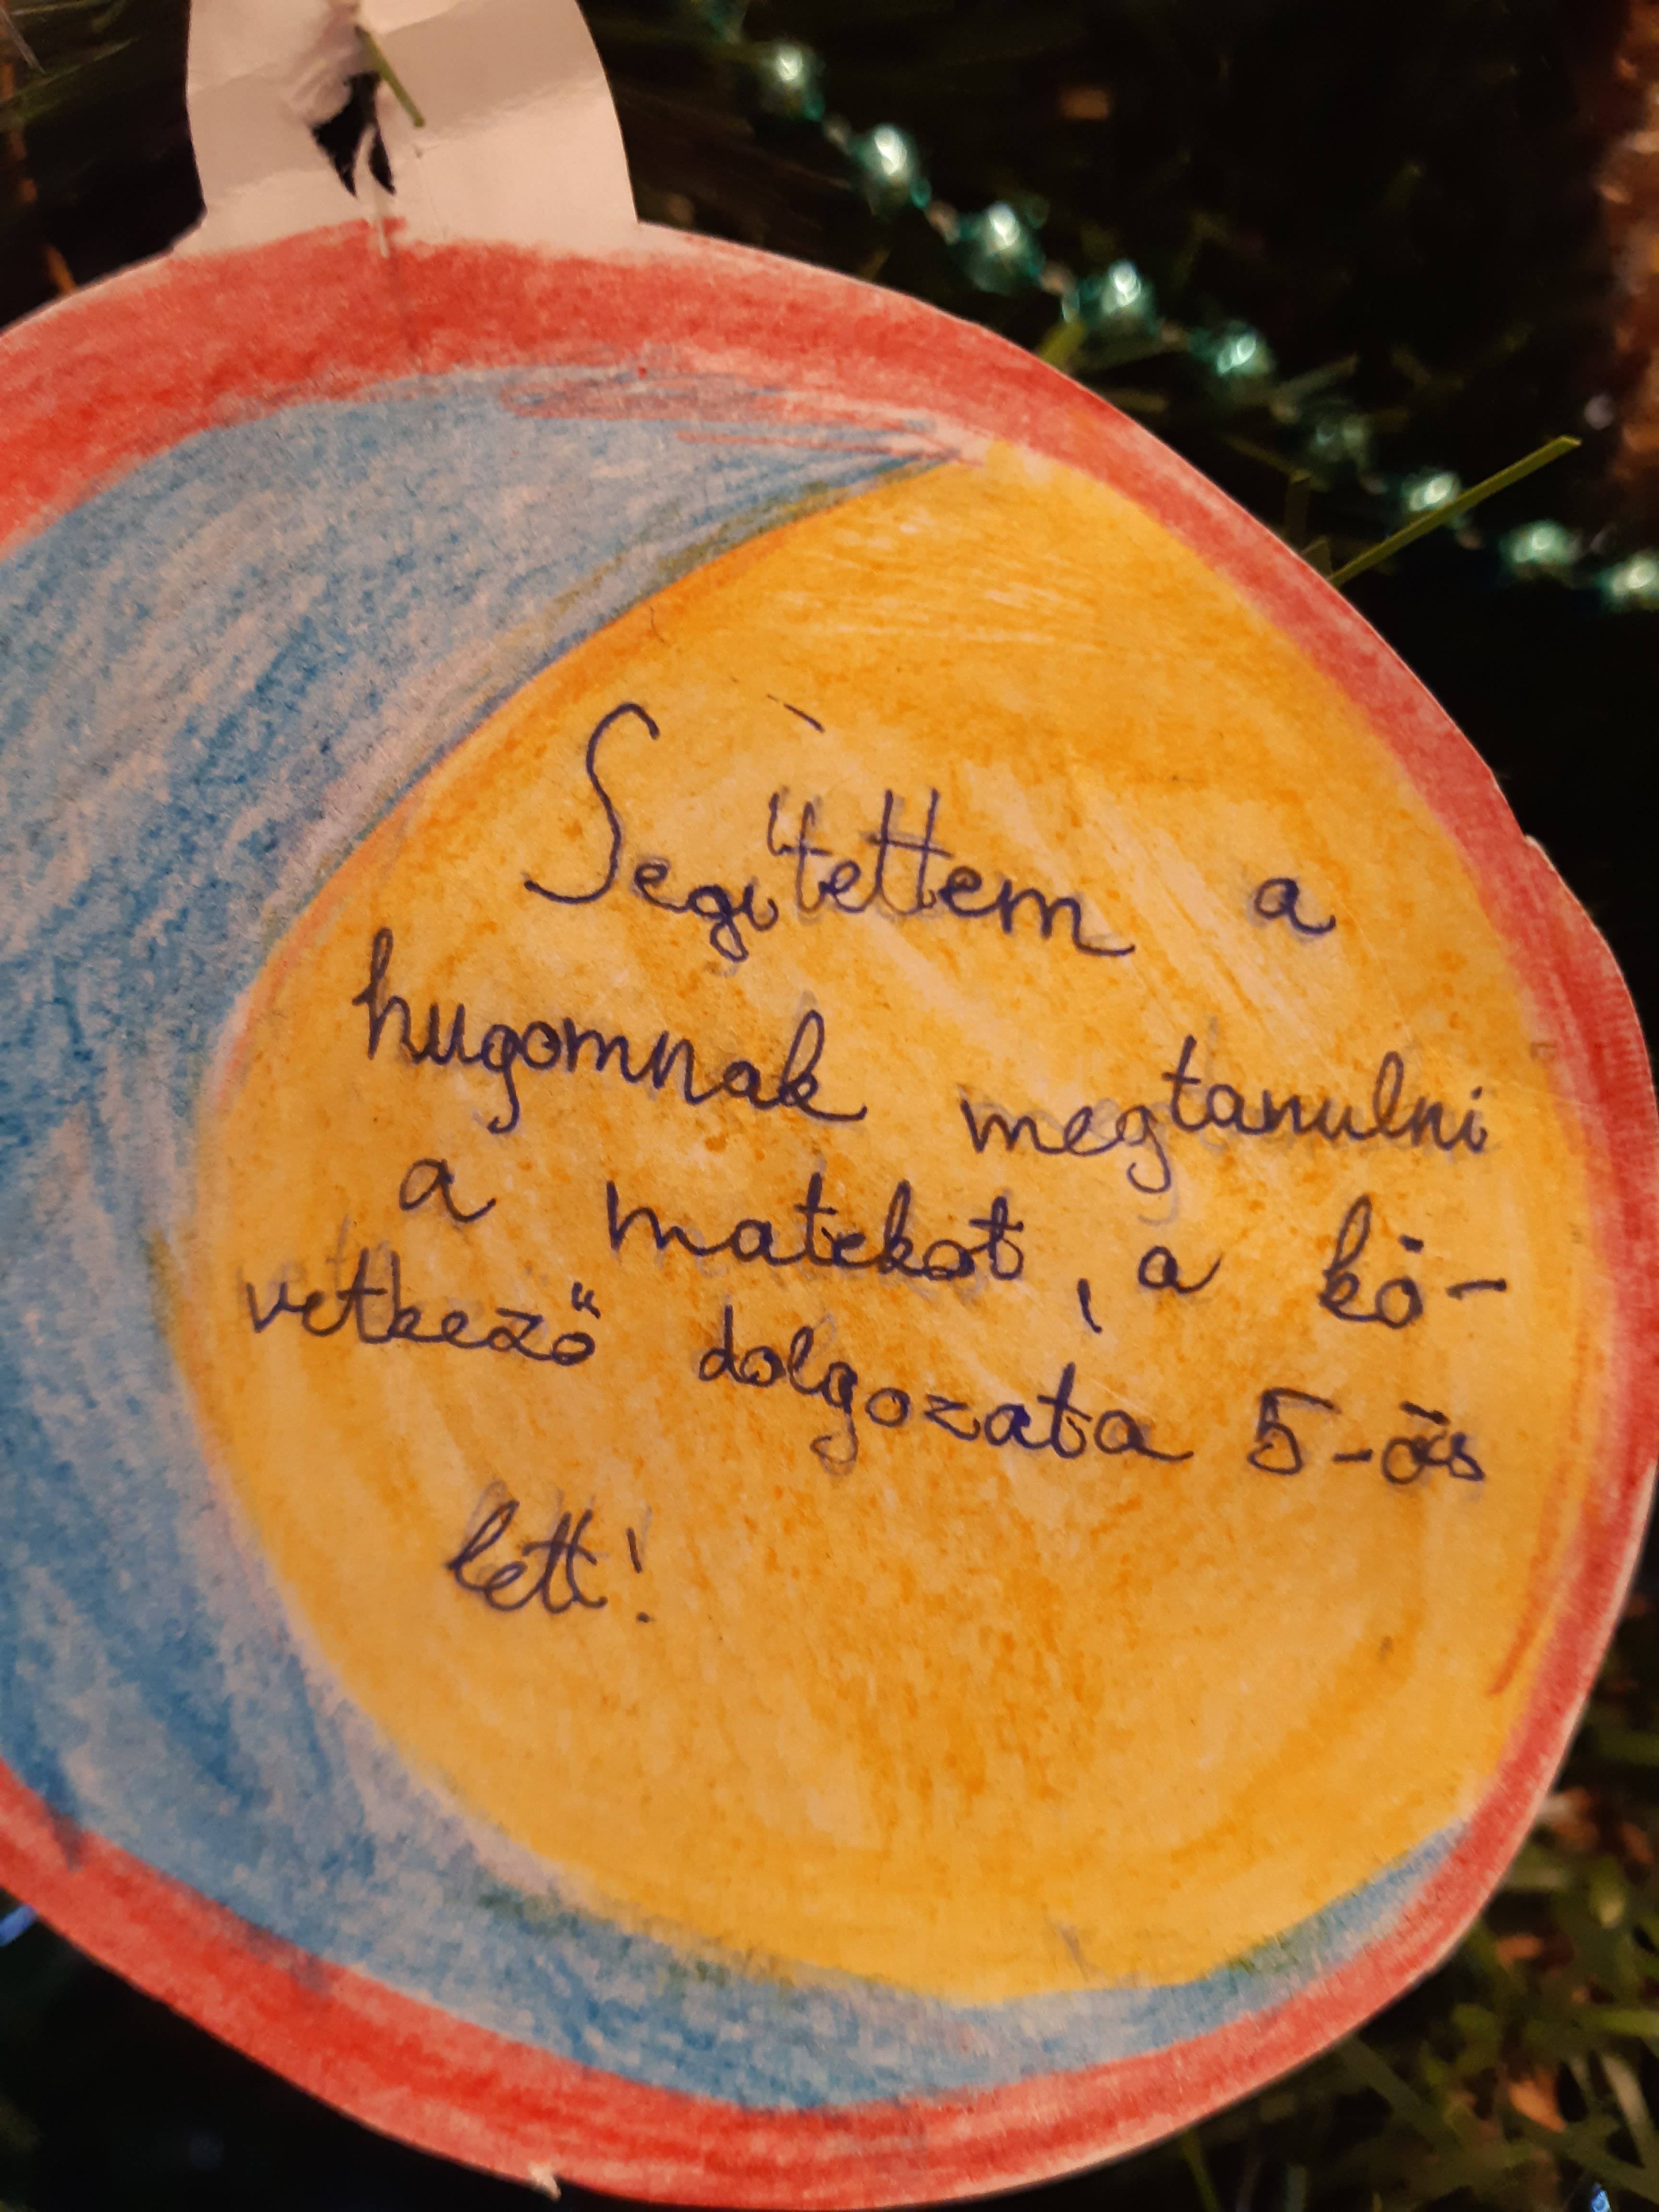 Segítettem a
hugomnak megtanulni
a matekot, a kö-
vetkező dolgozata 5-ös
lett!